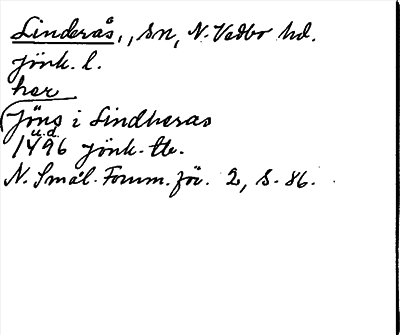 Linderås, sn, N. Vedbo hd.
Jönk. l.
her
(Jöns i Lindheras
u.d.
1496 Jönk. tb.
N. Smål. Fornm. för. 2, s. 86.